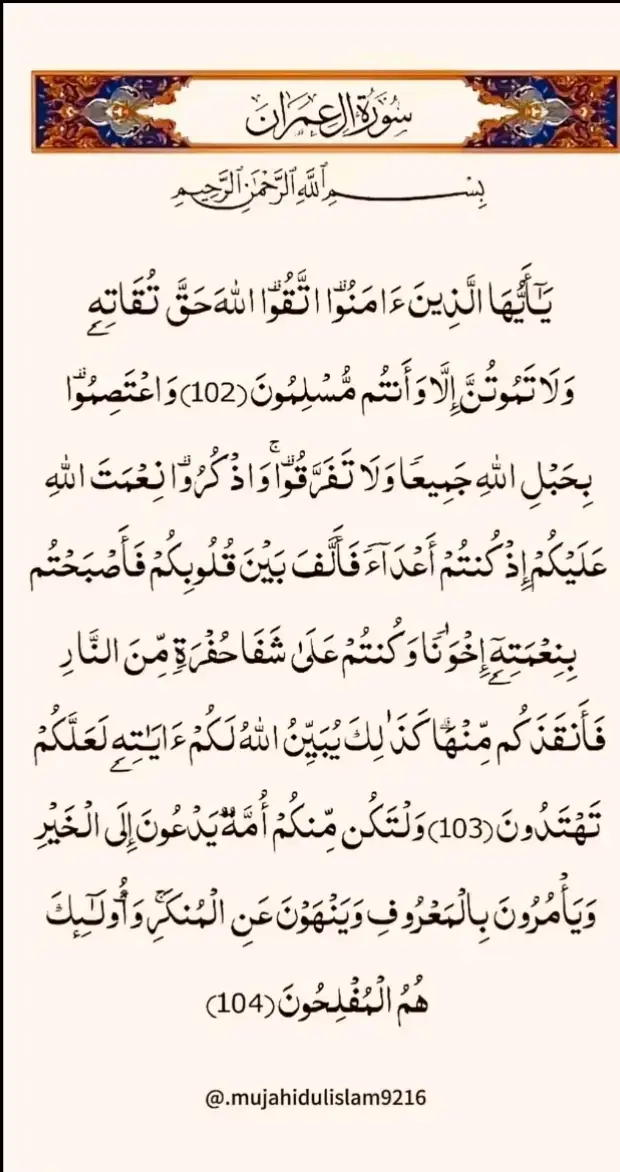 سُورَةُ آلِ عِمْرَانَ
بِسْمِ ٱللَّهِ ٱلرَّحْمَٰنِ ٱلرَّحِيمِ
يَـٰٓأَيُّهَا الَّذِينَ ءَامَنُوا۟ اتَّقُوا۟ اللَّهَ حَقَّ تُقَاتِهِۦ
وَلَا تَمُوتُنَّ إِلَّا وَأَنتُم مُّسْلِمُونَ (102) وَاعْتَصِمُوا۟
بِحَبْلِ اللَّهِ جَمِيعًا وَلَا تَفَرَّقُوا۟ۚ وَاذْكُرُوا۟ نِعْمَتَ اللَّهِ
عَلَيْكُمْ إِذْ كُنتُمْ أَعْدَآءً فَأَلَّفَ بَيْنَ قُلُوبِكُمْ فَأَصْبَحْتُم
بِنِعْمَتِهِۦٓ إِخْوَٰنًا وَكُنتُمْ عَلَىٰ شَفَا حُفْرَةٍ مِّنَ النَّارِ
فَأَنقَذَكُم مِّنْهَاۗ كَذَٰلِكَ يُبَيِّنُ اللَّهُ لَكُمْ ءَايَـٰتِهِۦ لَعَلَّكُمْ
تَهْتَدُونَ (103) وَلْتَكُن مِّنكُمْ أُمَّةٌ يَدْعُونَ إِلَى الْخَيْرِ
وَيَأْمُرُونَ بِالْمَعْرُوفِ وَيَنْهَوْنَ عَنِ الْمُنكَرِۚ وَأُو۟لَـٰٓئِكَ
هُمُ الْمُفْلِحُونَ (104)
@.mujahidulislam9216